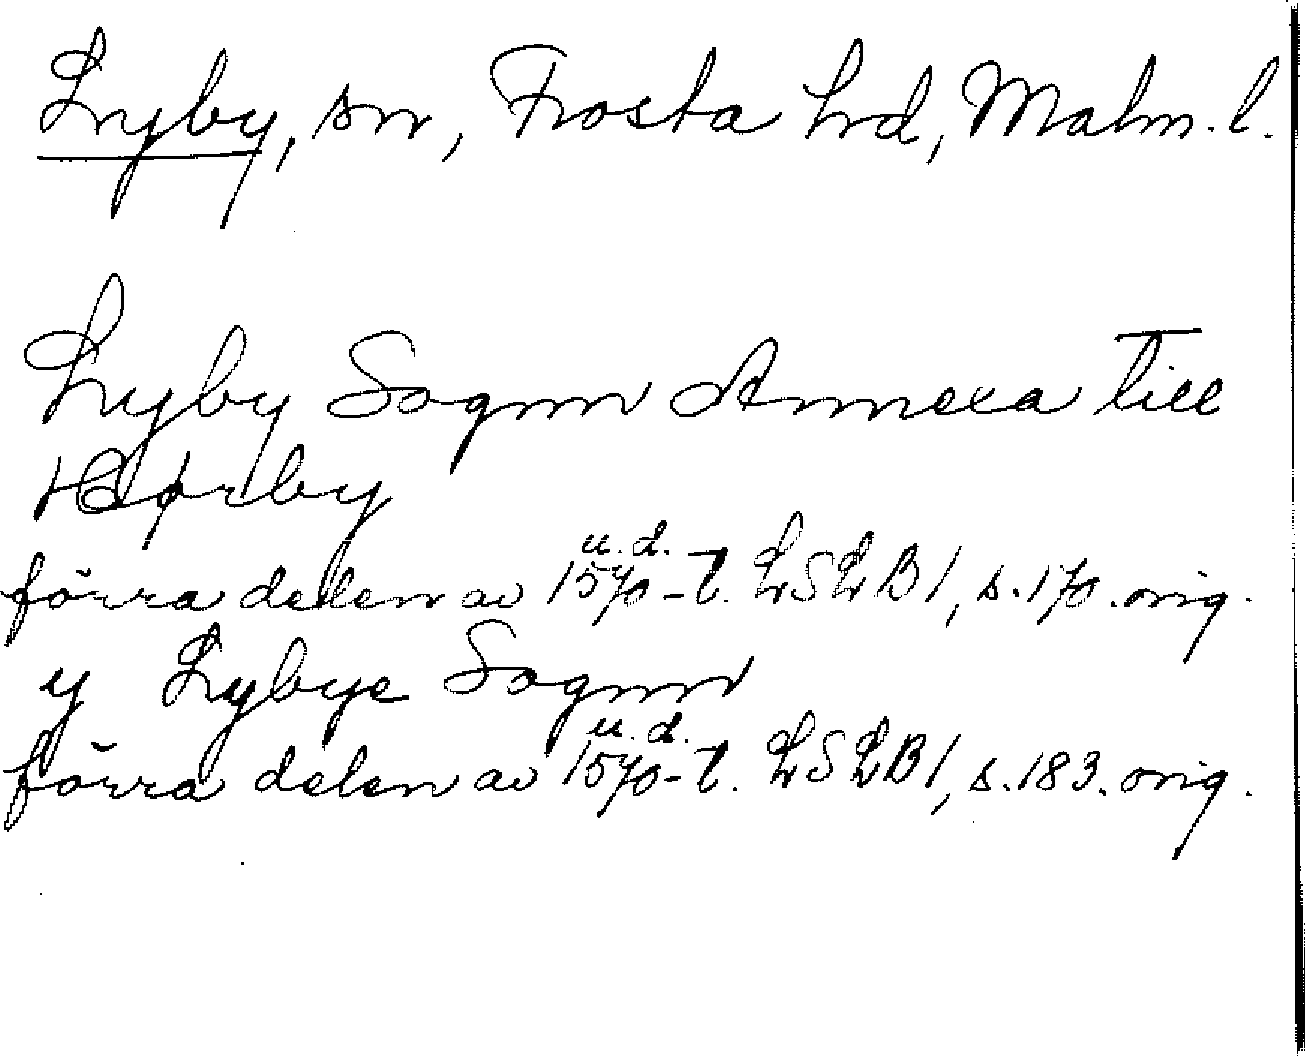 Lyby, sn, Frosta hd, Malm. l.
Lyby Sognn Annexa till
Hørby
u. d.
förra delen av 1570-t. LSLB1, s. 170. orig.
y Lybye Sognn
u. d.
förra delen av 1570-t. LSLB1, s. 183. orig.